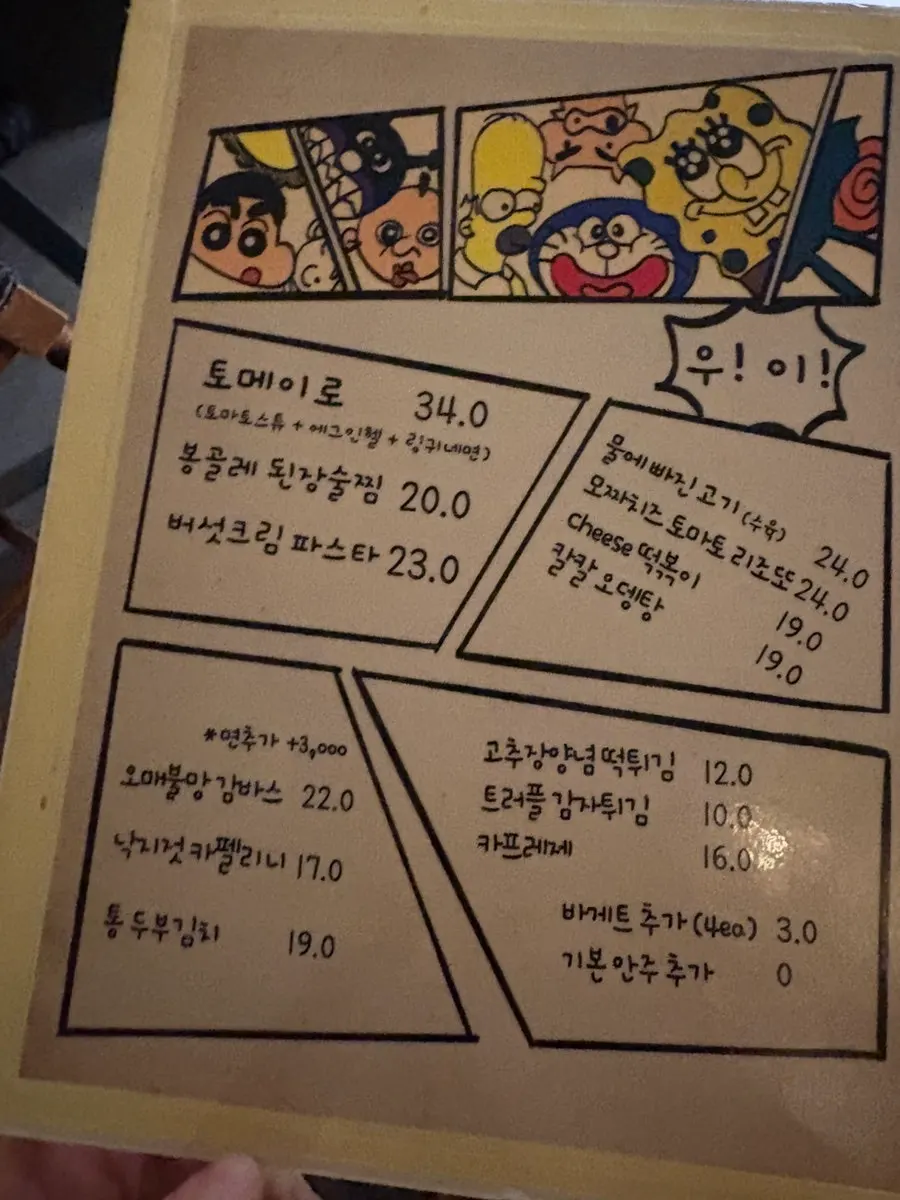 우! 이!
토메이로 34.0
(토마토스튜 + 에그인헬 + 링귀네면)
봉골레 된장술찜 20.0
버섯크림 파스타 23.0
물에 빠진 고기 (수육) 24.0
모짜치즈 토마토 리조또 24.0
cheese 떡볶이 19.0
칼칼 오뎅탕 19.0
*면추가 +3,000
오매불망 감바스 22.0
낙지젓 카펠리니 17.0
통 두부김치 19.0
고추장양념 떡튀김 12.0
트러플 감자튀김 10.0
카프레제 16.0
바게트 추가 (4ea) 3.0
기본 안주 추가 0